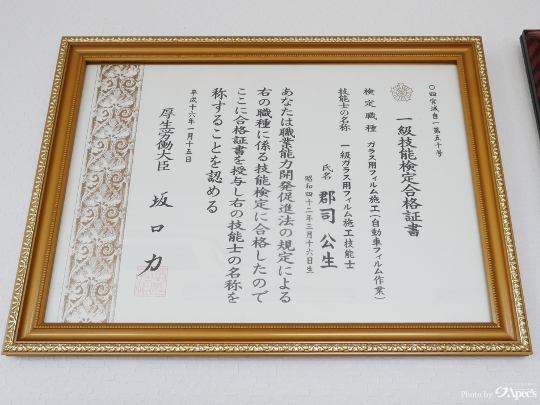 〇四宮城自一第五十号
一級技能検定合格証書
検定職種 ガラス用フィルム施工(自動車フィルム作業)
技能士の名称 一級ガラス用フィルム施工技能士
氏名 郡司 公生
昭和四十二年三月十六日生
あなたは職業能力開発促進法の規定による
右の職種に係る技能検定に合格したので
ここに合格証書を授与し右の技能士の名称を
称することを認める
平成十六年一月十五日
厚生労働大臣 坂口 力
Photo by Apec's